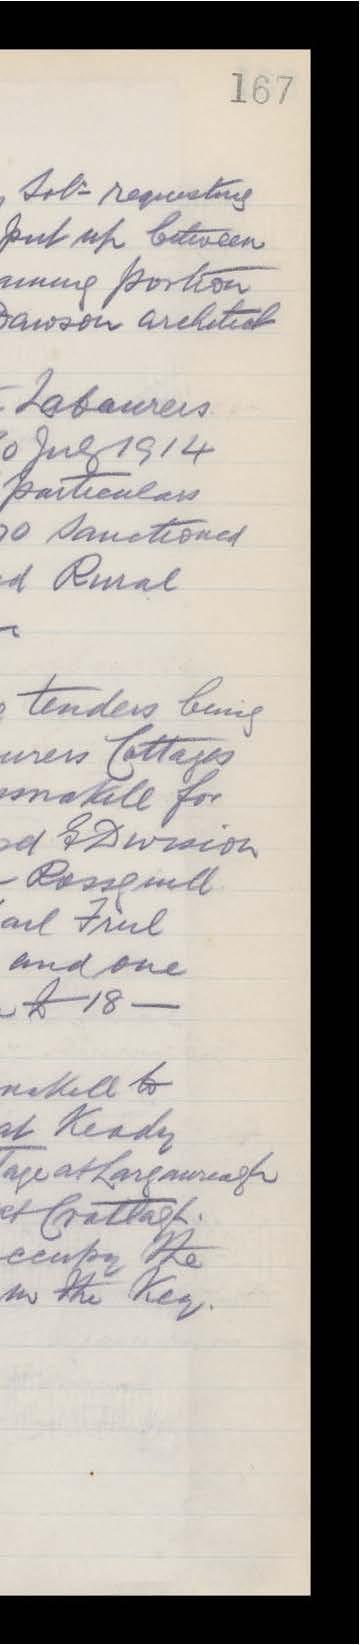 167
Solr requesting
put up between
aining portion
Dawson architect
Labourers
July 1914
particulars
sanctioned
d Rural
tenders being
urers Cottages
for
ed E Division
Rossguill
Friel
and one
£ 18 —
nakill to
at Keady
age at Largaureagh
at Crattagh.
ccupy the
the Key.